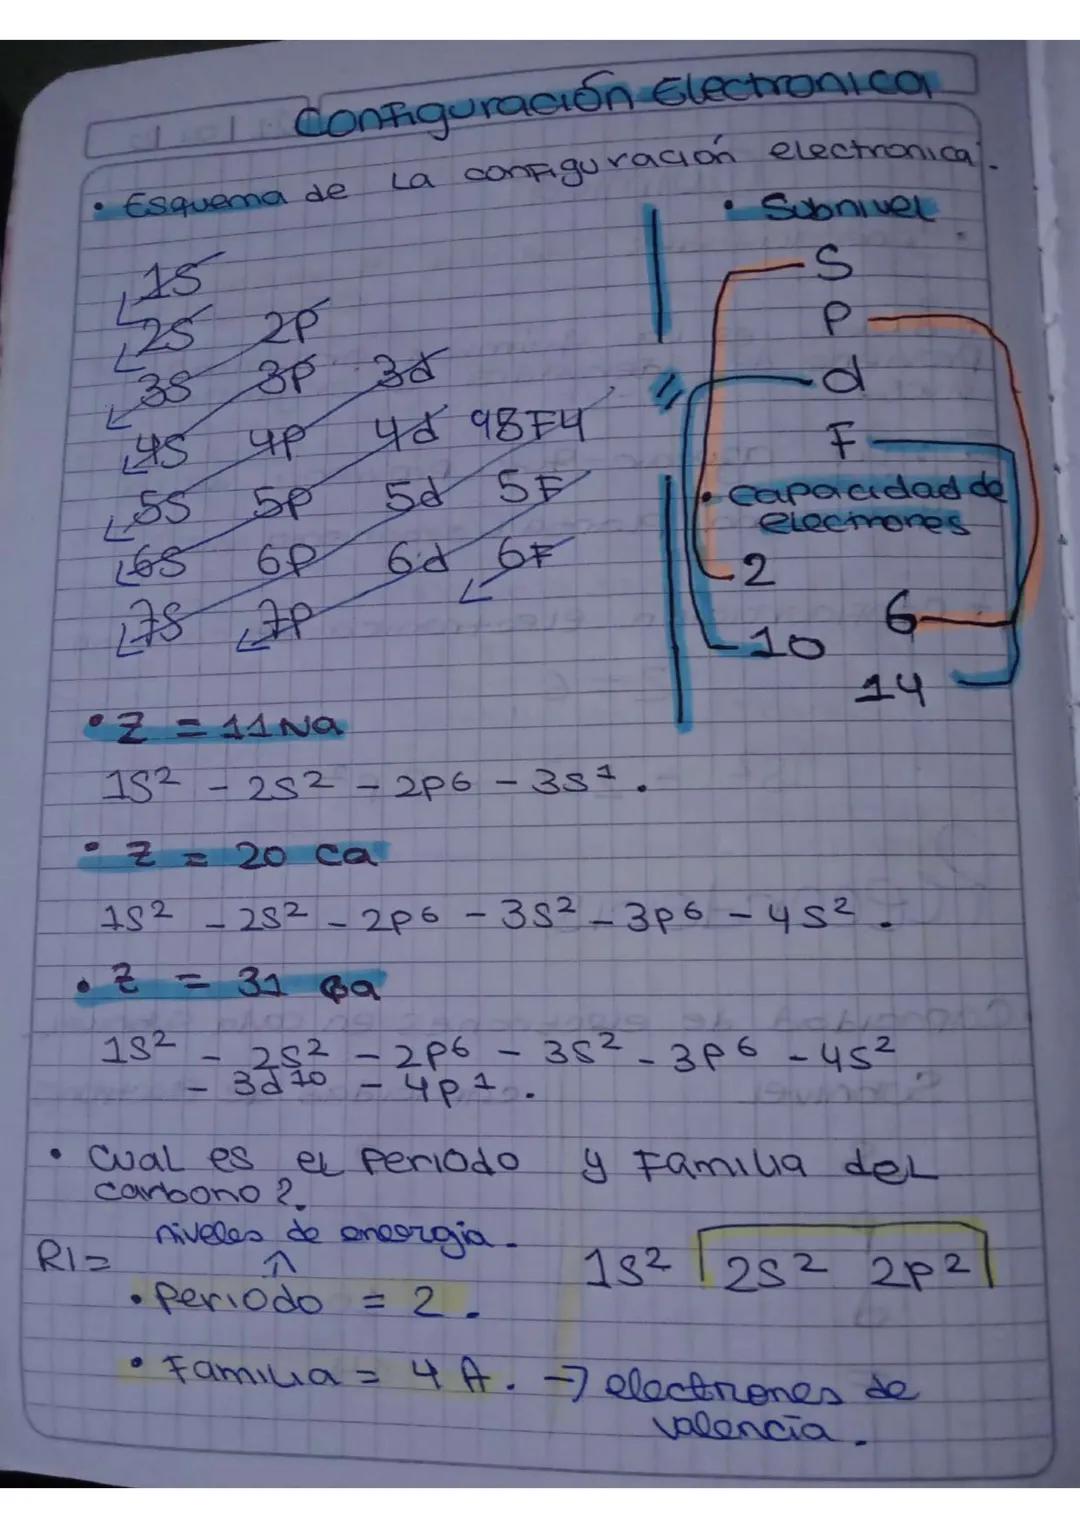 Configuración Electronica
• Esquema de La configuración electronica.
1S
2S 2P
3S 3P 3d
4S 4P 4d 98F4
5S 5P 5d 5F
6S 6P 6d 6F
7S 7P
• Subnivel
S
P
d
F
• capacidad de
electrones
2
6
10
14
• Z = 11 Na
1S² - 2S² - 2P⁶ - 3S¹.
• Z = 20 Ca
1S² - 2S² - 2P⁶ - 3S² - 3P⁶ - 4S².
• Z = 31 Ga
1S² - 2S² - 2P⁶ - 3S² - 3P⁶ - 4S²
- 3d¹⁰ - 4P¹.
• Cual es el Periodo y Familia del
carbono?.
niveles de eneergia.
R1= ↑ 1S² 2S² 2P²
• Periodo = 2.
• Familia = 4 A. → electrones de
valencia.